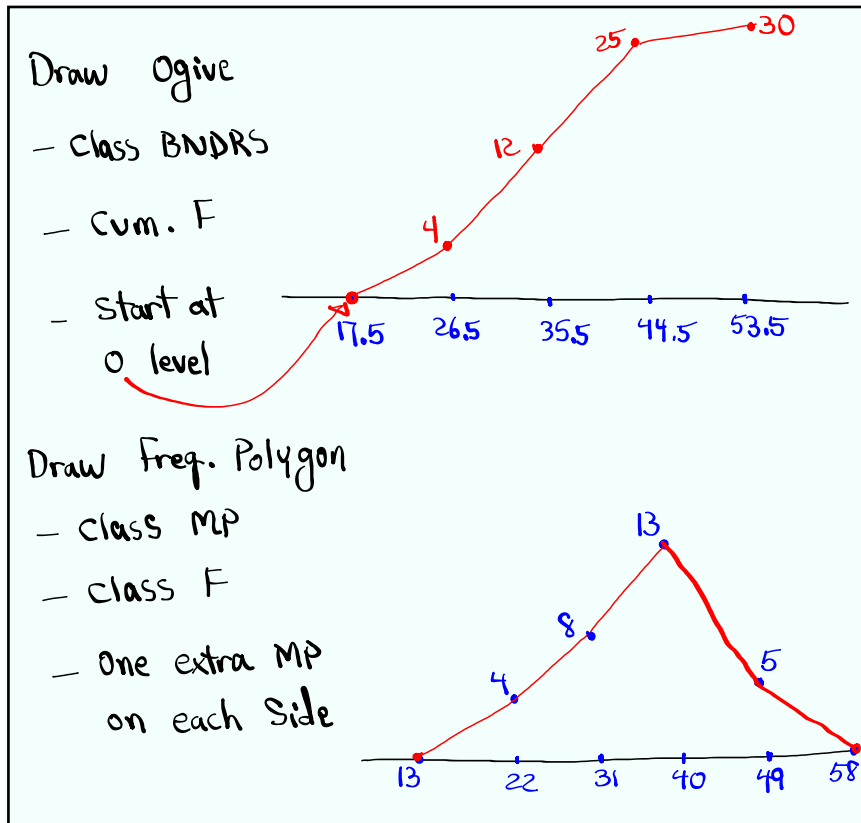 Draw Ogive
- Class BNDRS
- Cum. F
- Start at
0 level
4
12
25
30
17.5 26.5 35.5 44.5 53.5
Draw Freq. Polygon
- Class MP
- Class F
- One extra MP
on each Side
4
8
13
5
13 22 31 40 49 58